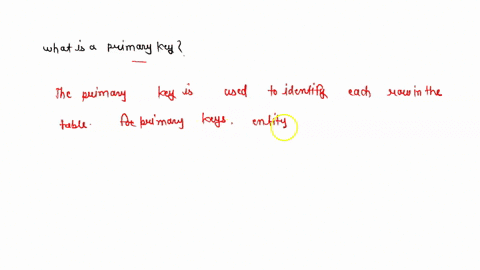 what is a primary key?
The primary key is used to identify each row in the
table. for primary keys. entity